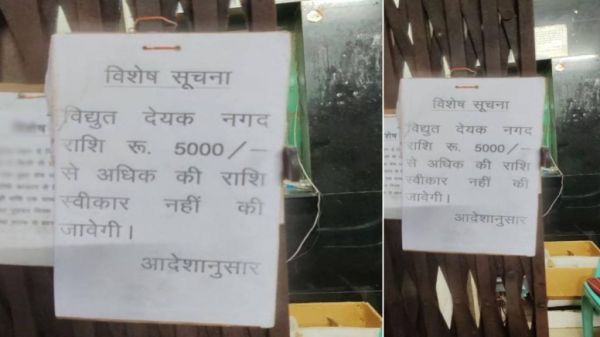 विशेष सूचना
विद्युत देयक नगद
राशि रू. 5000/-
से अधिक की राशि
स्वीकार नहीं की
जावेगी।
आदेशानुसार
विशेष सूचना
विद्युत देयक नगद
राशि रू. 5000/-
से अधिक की राशि
स्वीकार नहीं की
जावेगी।
आदेशानुसार